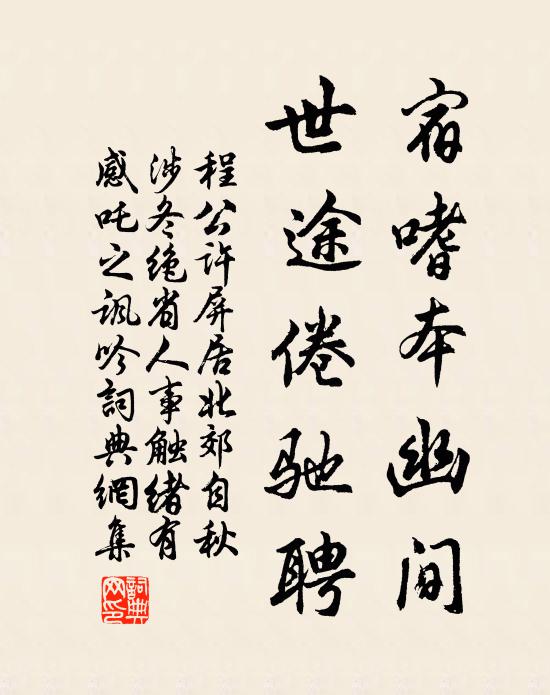 宿嗜本幽间
世途倦驰聘
程公许屏居北郊自秋
涉冬绝省人事触绪有
感吒之讽吟詞典網集
詞典網印